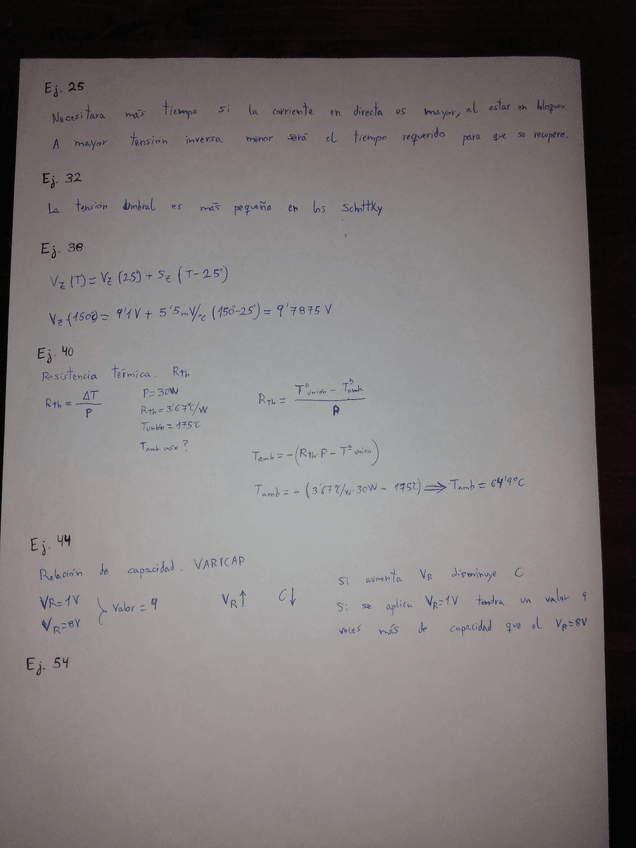 Ej. 25
Necesitara más tiempo si la corriente en directa es mayor, al estar en bloqueo.
A mayor tensión inversa menor será el tiempo requerido para que se recupere.
Ej. 32
La tensión umbral es más pequeña en los Schottky
Ej. 38
Vz (T) = Vz (25°) + Sz (T - 25°)
Vz (150°) = 9'1 V + 5'5 mV/°C (150°-25°) = 9'7875 V
Ej. 40
Resistencia térmica. Rth
Rth = ΔT / P
P = 30W
Rth = 3'67°C/W
Tunión = 175°C
Tamb máx ?
Rth = T°unión - T°amb / P
Tamb = - (Rth · P - T°unión)
Tamb = - (3'67°C/W · 30W - 175°C) ⟹ Tamb = 64'9°C
Ej. 44
Relación de capacidad. VARICAP
VR = 1V
VR = 8V
} Valor = 9
VR ↑ C ↓
Si aumenta VR disminuye C
Si se aplica VR = 1V tendra un valor 9
veces más de capacidad que el VR = 8V
Ej. 54